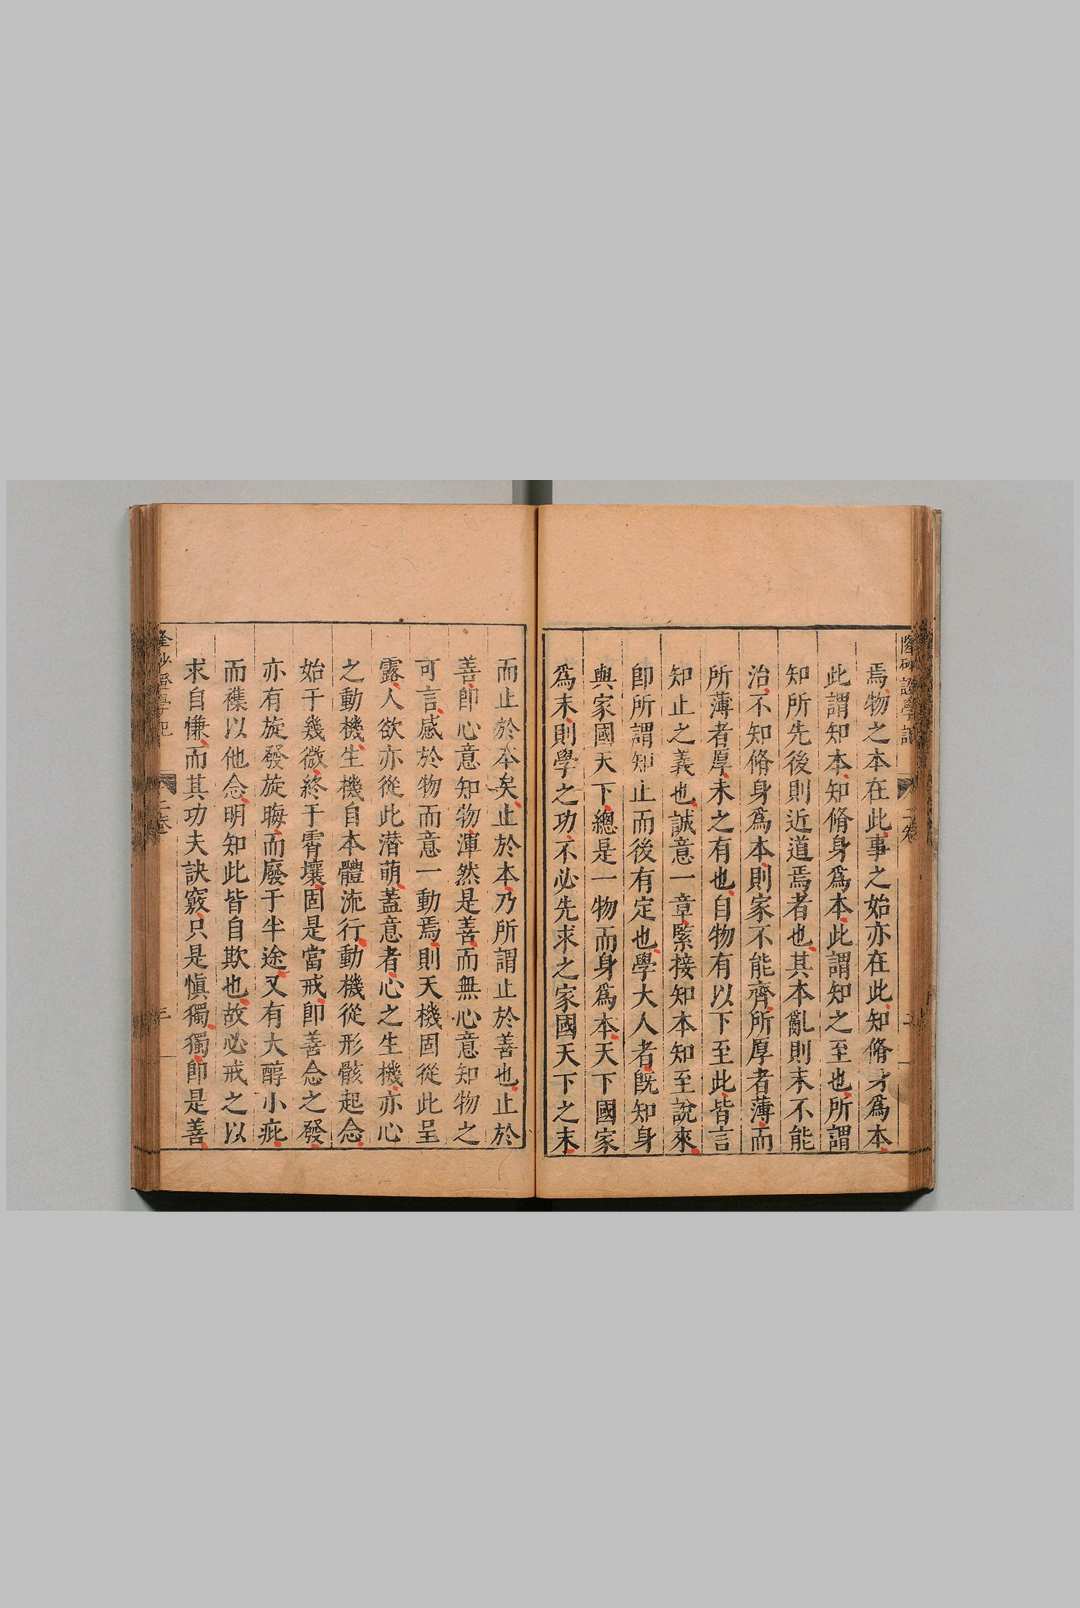 焉物之本在此事之始亦在此知脩身爲本
此謂知本知脩身爲本此謂知之至也所謂
知所先後則近道焉者也其本亂則末不能
治不知脩身爲本則家不能齊所厚者薄而
所薄者厚未之有也自物有以下至此皆言
知止之義也誠意一章緊接知本知至說來
即所謂知止而後有定也學大人者旣知身
與家國天下總是一物而身爲本天下國家
爲末則學之功不必先求之家國天下之末
而止於本矣止於本乃所謂止於善也止於
善即心意知物渾然是善而無心意知物之
可言感於物而意一動焉則天機固從此呈
露人欲亦從此潛萌蓋意者心之生機亦心
之動機生機自本體流行動機從形骸起念
始于幾微終于霄壤固是當戒即善念之發
亦有旋發旋晦而廢于半途又有大醇小疵
而襍以他念明知此皆自欺也故必戒之以
求自慊而其功夫訣竅只是愼獨獨即是善